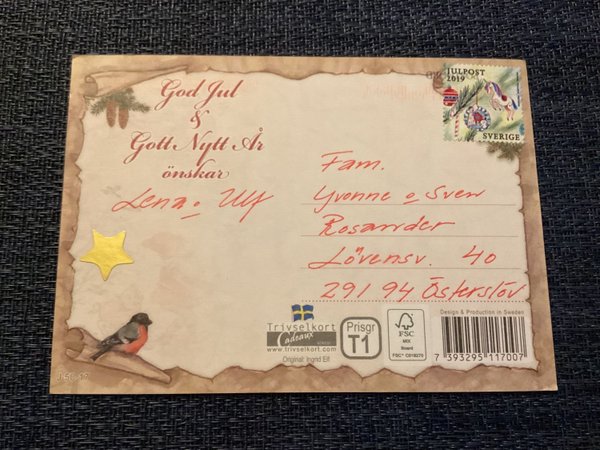 God Jul
&
Gott Nytt År
önskar
Lena o Ulf
JULPOST
2019
SVERIGE
Fam.
Yvonne o Sven
Rosander
Lövensv. 40
291 94 Österslöv
Trivselkort
Cadeaux
www.trivselkort.com
Original: Ingrid Elf
Prisgr
T1
FSC
MIX
Board
FSC® C019270
Design & Production in Sweden
7 393295 117007